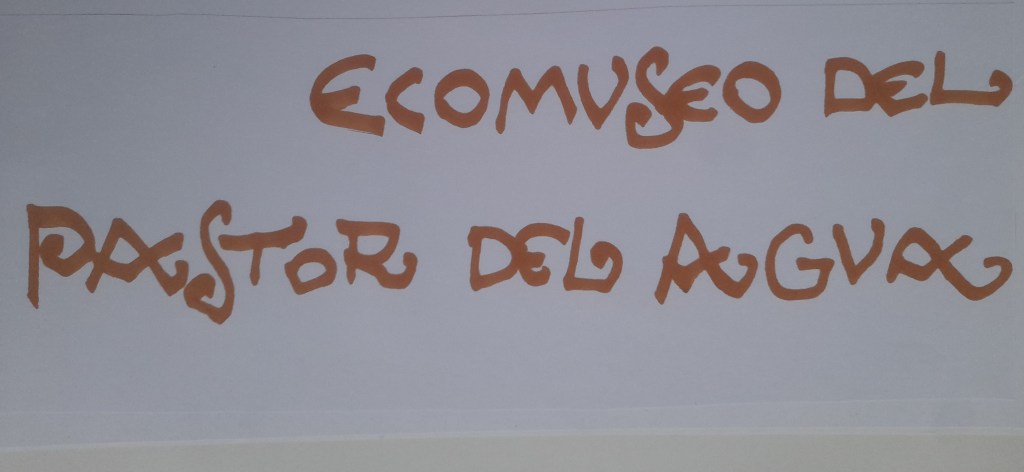 ECOMUSEO DEL
PASTOR DEL AGUA